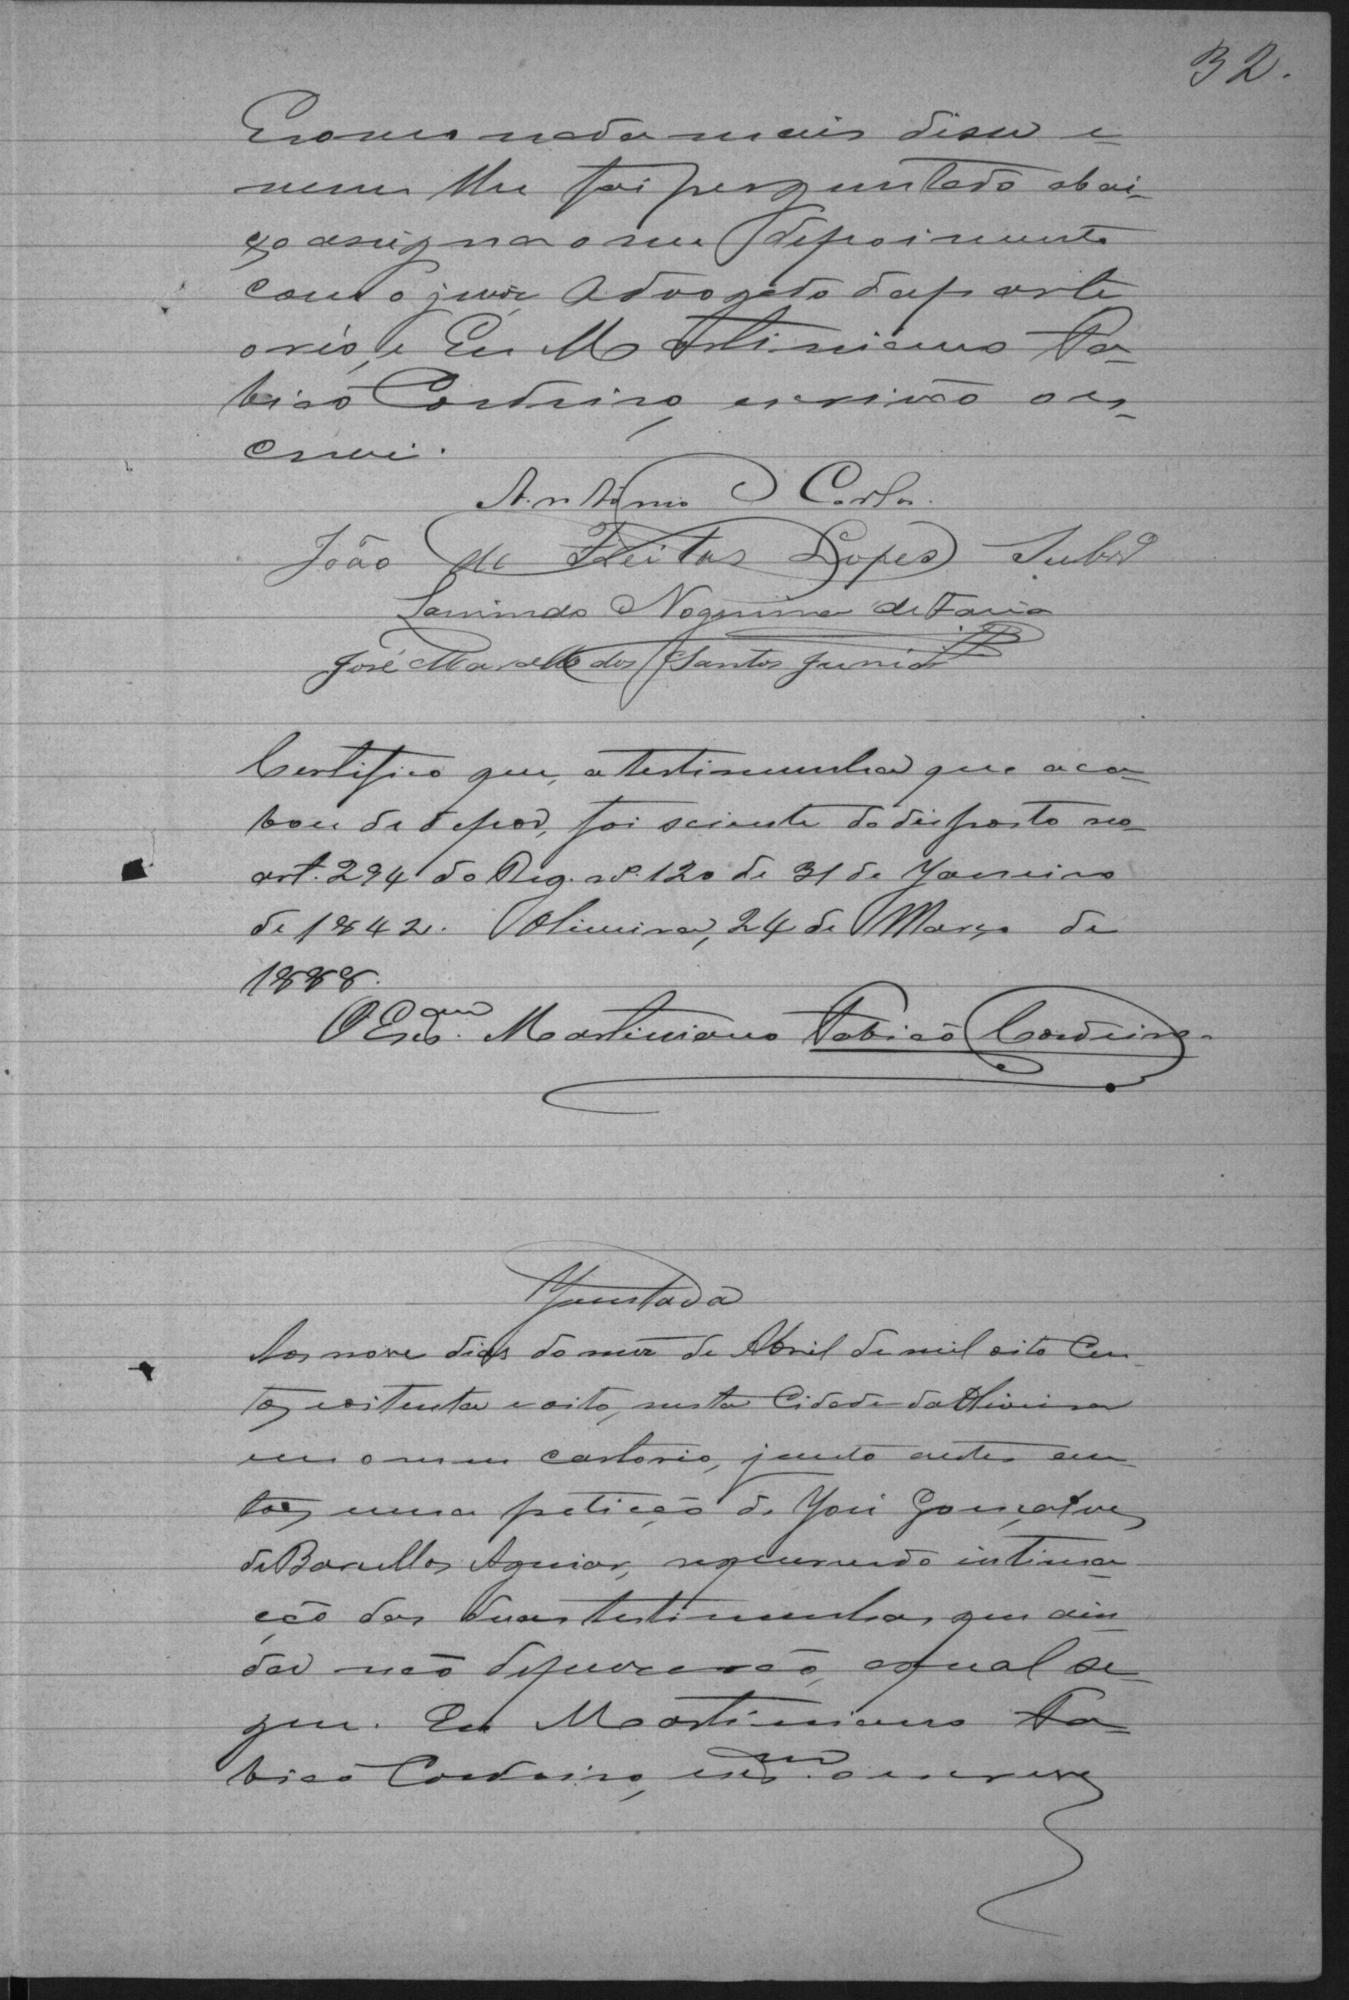 32.
E como nada mais disse e
nem lhe foi perguntado abai-
xo assigna o seu depoimento
com o juiz, Advogado da parte
o réo, e Eu Martiniano Ta-
bico Cordeiro, escrivão o es-
crevi.
Antonio Carlos.
João de Freitas Lopes Subd
Laurindo Nogueira de Faria
José Marcellos dos Santos Junior
Certifico que, a testimunha que aca-
bou de depor, foi sciente do disposto no
art. 294 do Reg. nº. 120 de 31 de Janeiro
de 1842. Oliveira, 24 de Março de
1888.
O Escam. Martiniano Tabicó Cordeiro
Juntada
Aos nove dias do mez de Abril de mil oito Cen-
tos, e oitenta e oito, nesta Cidade da Oliveira
em o meu cartorio, junto a estes au-
tos, uma petição de José Gonçalves
de Barcellos Aguiar, requerendo intima-
ção das duas testimunhas que ain-
da não depuzerão, a qual se-
gue. Eu Martiniano Ta-
bicó Cordeiro, escam. o escrevi